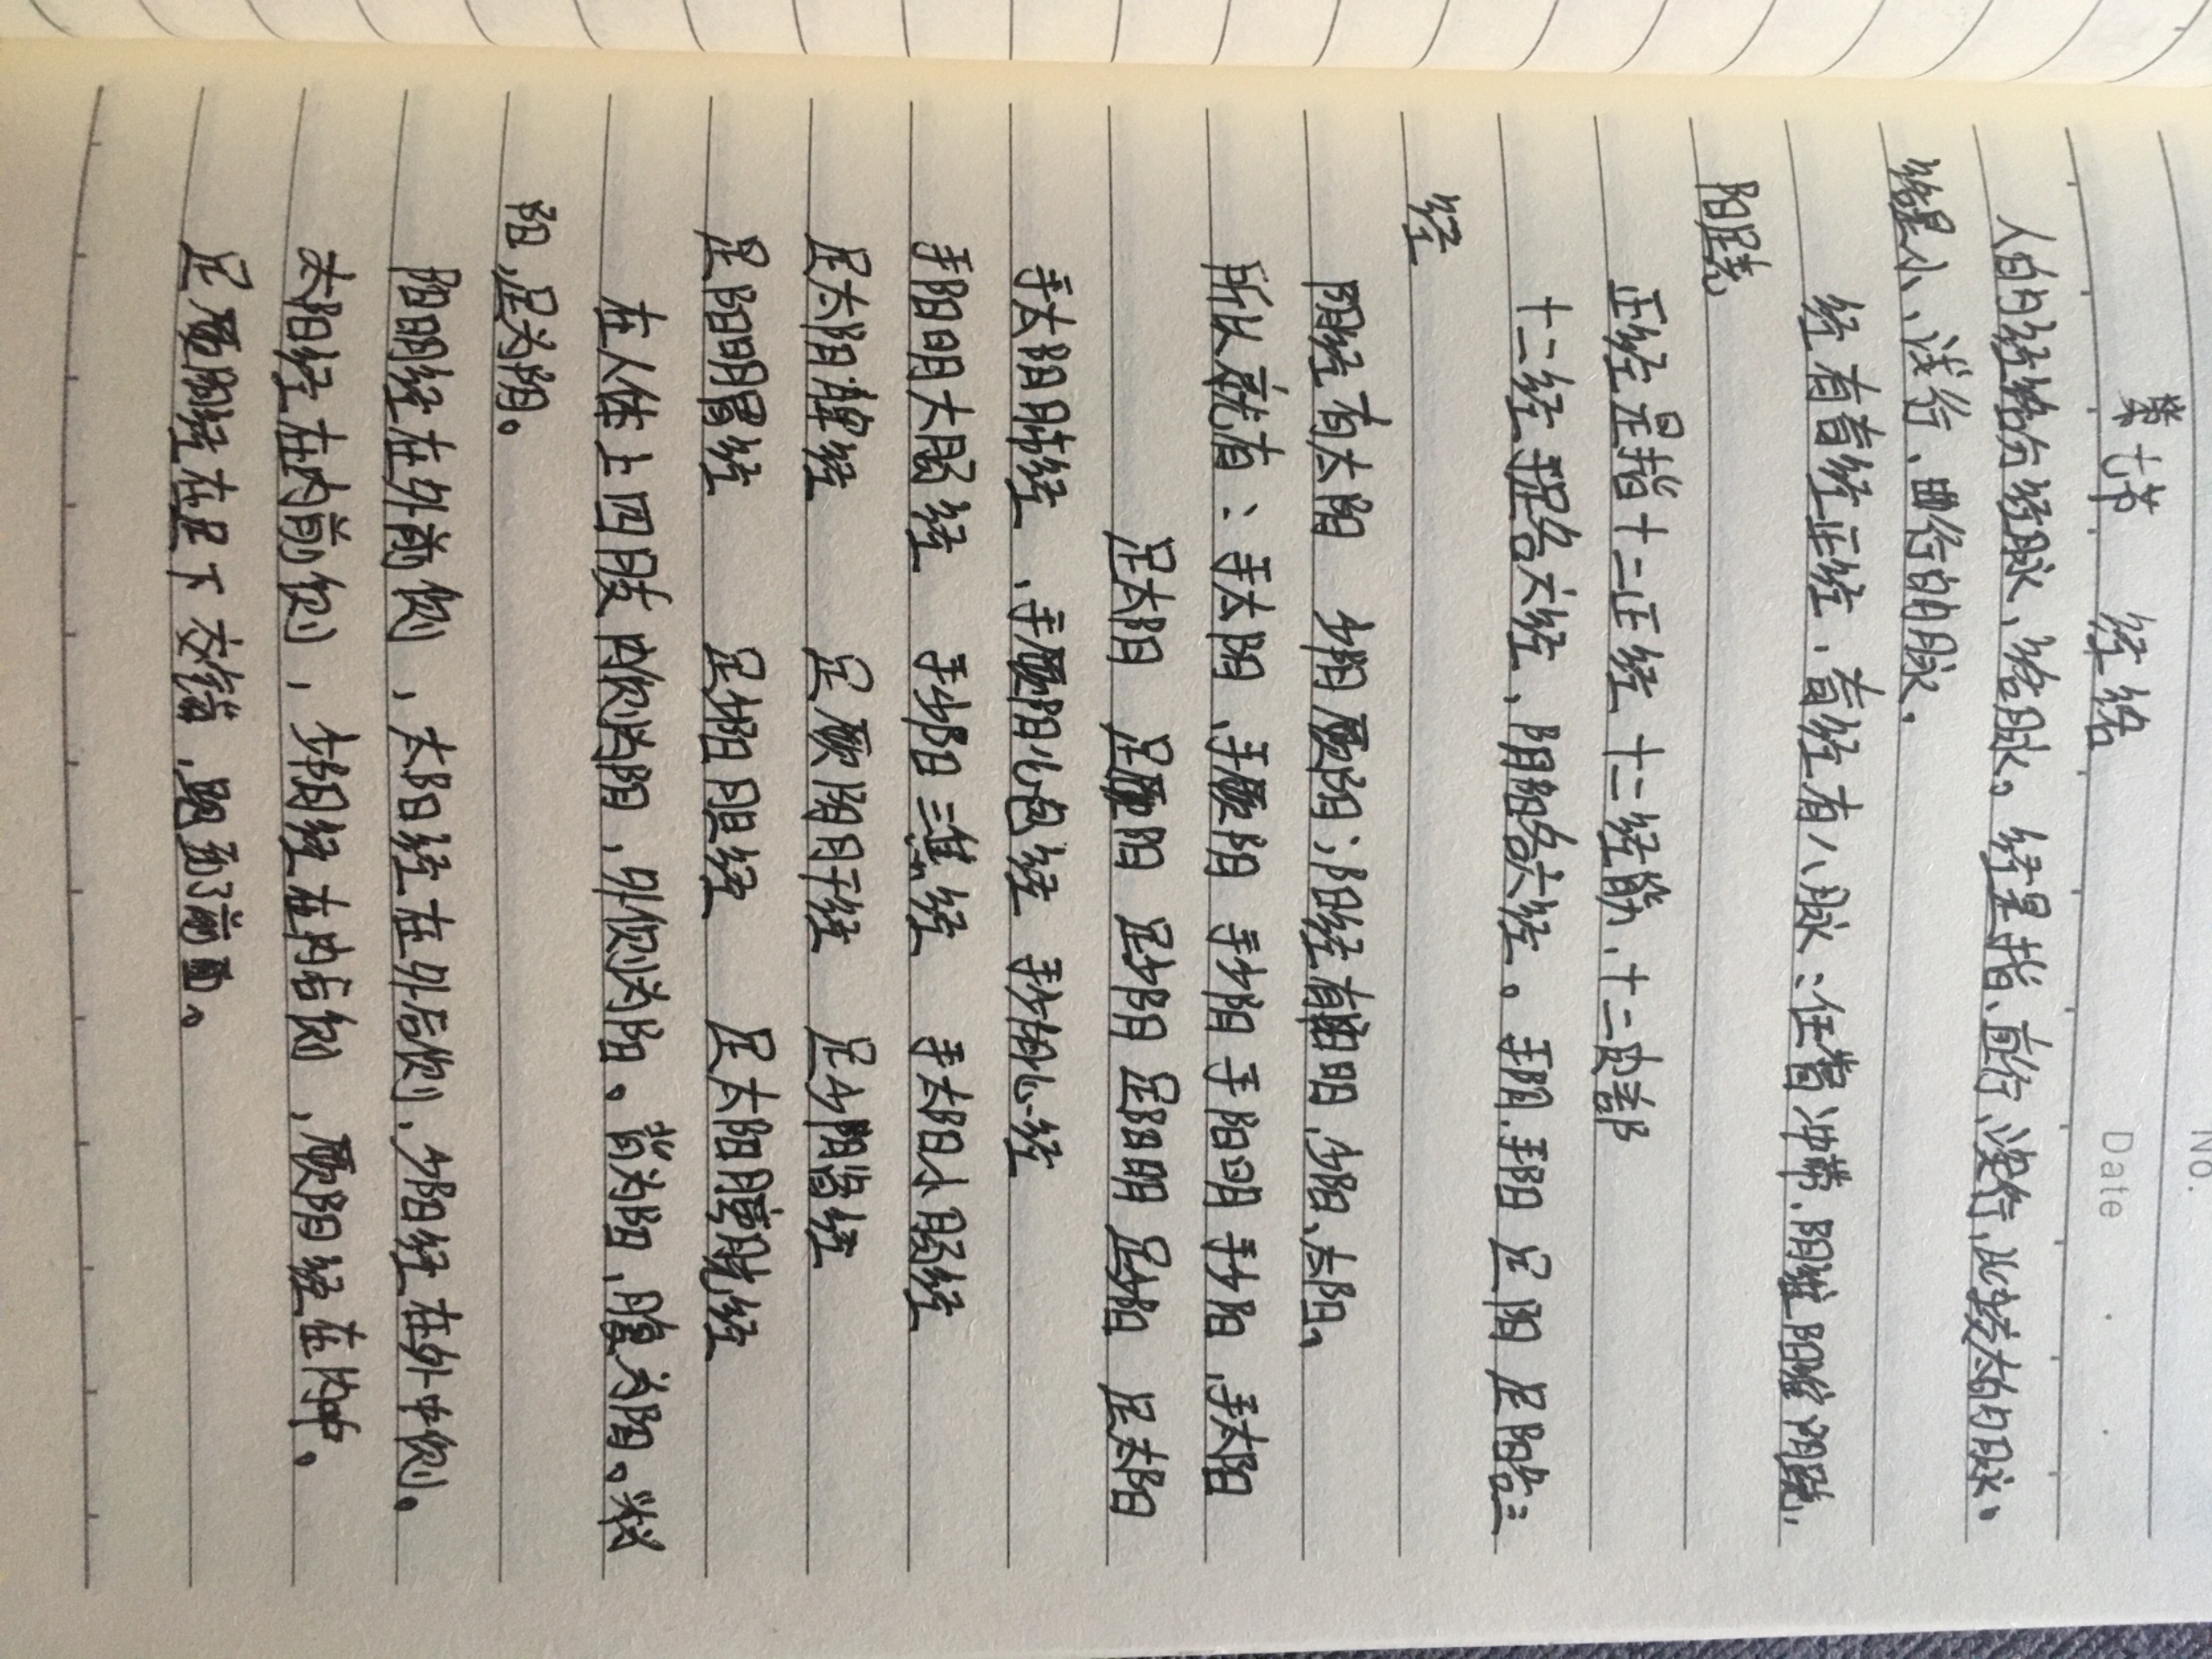 No.
第七节 经络
Date
人的经络分经脉、络脉。经是指、直行、深行、比较大的的脉、
络是小、浅行、曲行的的脉.
经有奇经正经.奇经有八脉:任督冲带.阴维阳维阴跷,
阳跷
正经是指十二正经 十二经筋.十二皮部
十二经手足各六经、阴阳各六经。手阴.手阳 足阴 足阳各三
经
阴经有太阴 少阴厥阴;阳经有阳明.少阳、太阳、
所以就有:手太阴、手厥阴 手少阴 手阳明 手少阳、手太阳
足太阴 足厥阴 足少阴 足阳明 足少阳 足太阳
手太阴肺经、手厥阴心包经 手少阴心经
手阳明大肠经 手少阳三焦经 手太阳小肠经
足太阴脾经 足厥阴肝经 足少阴肾经
足阳明胃经 足少阳胆经 足太阳膀胱经
在人体上四肢内侧为阴,外侧为阳。背为阳、腹为阴。头为
阳,足为阴。
阳明经在外前侧,太阳经在外后侧、少阳经在外中侧。
太阴经在内前侧,少阴经在内后侧,厥阴经在内中。
足厥阴经在足下交错、到前面。